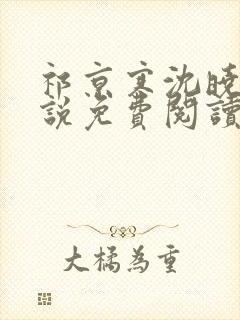 祁京寒沈曉
說免費閱讀
大橘為重